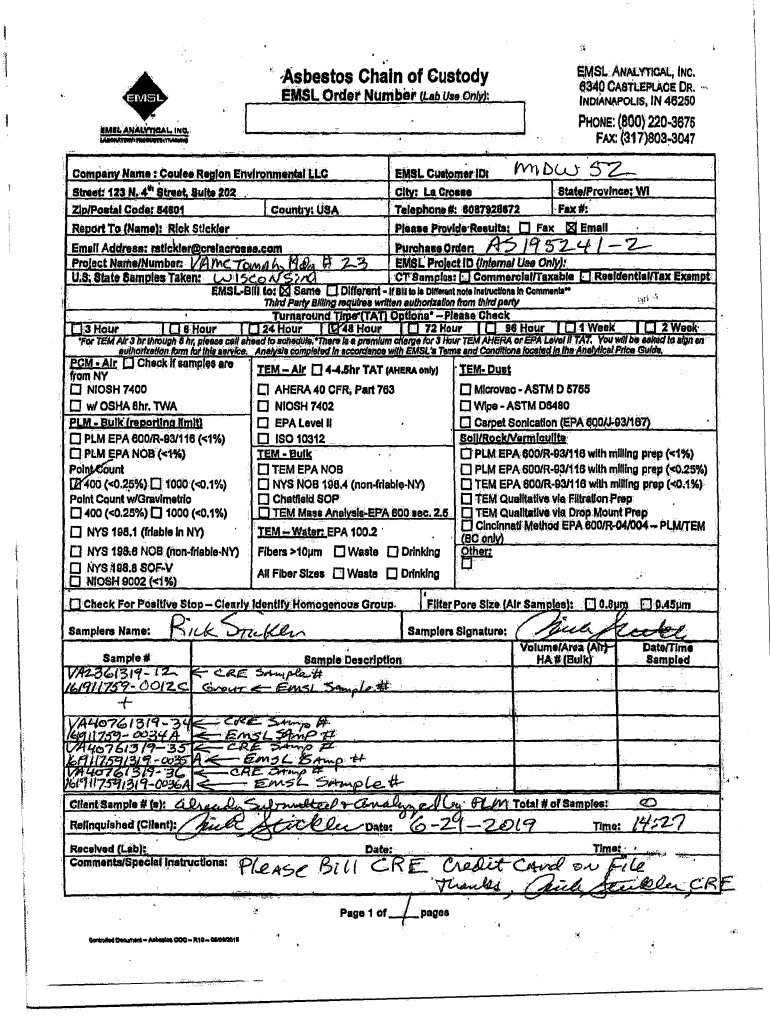 Asbestos Chain of Custody
EMSL Order Number (Lab Use Only):
EMSL
EMSL ANALYTICAL, INC.
LABORATORY•PRODUCTS•TRAINING
EMSL ANALYTICAL, INC.
6340 CASTLEPLACE DR.
INDIANAPOLIS, IN 46250
PHONE: (800) 220-3675
FAX: (317)803-3047
Company Name : Coulee Region Environmental LLC
EMSL Customer ID: MDW 52
Street: 123 N. 4th Street, Suite 202
City: La Crosse State/Province: WI
Zip/Postal Code: 54601 Country: USA
Telephone #: 6087926672 Fax #:
Report To (Name): Rick Stickler
Please Provide Results: ☐ Fax ☒ Email
Email Address: rstickler@crelacrosse.com
Purchase Order: AS195241-2
Project Name/Number: VAMC Tomah Bldg # 23
EMSL Project ID (Internal Use Only):
U.S. State Samples Taken: WISCONSIN
CT Samples: ☐ Commercial/Taxable ☐ Residential/Tax Exempt
EMSL-Bill to: ☒ Same ☐ Different - If Bill to is Different note Instructions in Comments**
Third Party Billing requires written authorization from third party
Turnaround Time (TAT) Options* – Please Check
☐ 3 Hour ☐ 6 Hour ☐ 24 Hour ☒ 48 Hour ☐ 72 Hour ☐ 96 Hour ☐ 1 Week ☐ 2 Week
*For TEM Air 3 hr through 6 hr, please call ahead to schedule.*There is a premium charge for 3 Hour TEM AHERA or EPA Level II TAT. You will be asked to sign an
authorization form for this service. Analysis completed in accordance with EMSL's Terms and Conditions located in the Analytical Price Guide.
PCM - Air ☐ Check if samples are
from NY
☐ NIOSH 7400
☐ w/ OSHA 8hr. TWA
PLM - Bulk (reporting limit)
☐ PLM EPA 600/R-93/116 (<1%)
☐ PLM EPA NOB (<1%)
Point Count
☒ 400 (<0.25%) ☐ 1000 (<0.1%)
Point Count w/Gravimetric
☐ 400 (<0.25%) ☐ 1000 (<0.1%)
☐ NYS 198.1 (friable in NY)
☐ NYS 198.6 NOB (non-friable-NY)
☐ NYS 198.8 SOF-V
☐ NIOSH 9002 (<1%)
TEM – Air ☐ 4-4.5hr TAT (AHERA only)
☐ AHERA 40 CFR, Part 763
☐ NIOSH 7402
☐ EPA Level II
☐ ISO 10312
TEM - Bulk
☐ TEM EPA NOB
☐ NYS NOB 198.4 (non-friable-NY)
☐ Chatfield SOP
☐ TEM Mass Analysis-EPA 600 sec. 2.5
TEM – Water: EPA 100.2
Fibers >10µm ☐ Waste ☐ Drinking
All Fiber Sizes ☐ Waste ☐ Drinking
TEM- Dust
☐ Microvac - ASTM D 5755
☐ Wipe - ASTM D6480
☐ Carpet Sonication (EPA 600/J-93/167)
Soil/Rock/Vermiculite
☐ PLM EPA 600/R-93/116 with milling prep (<1%)
☐ PLM EPA 600/R-93/116 with milling prep (<0.25%)
☐ TEM EPA 600/R-93/116 with milling prep (<0.1%)
☐ TEM Qualitative via Filtration Prep
☐ TEM Qualitative via Drop Mount Prep
☐ Cincinnati Method EPA 600/R-04/004 – PLM/TEM
(BC only)
Other:
☐
☐ Check For Positive Stop – Clearly Identify Homogenous Group
Filter Pore Size (Air Samples): ☐ 0.8µm ☐ 0.45µm
Samplers Name: Rick Stickler
Samplers Signature: Rick Stickler
Sample # Sample Description Volume/Area (Air) HA # (Bulk) Date/Time Sampled
VA2361319-12 ← CRE Sample #
161911759-0012C Grout ← EMSL Sample #
+
VA40761319-34 ← CRE Samp #
16911759-0034A ← EMSL Samp #
VA40761319-35 ← CRE Samp #
1619117591319-0035A ← EMSL Samp #
VA40761319-36 ← CRE Samp #
1619117591319-0036A ← EMSL Sample #
Client Sample # (s): already Submitted + analyzed by PLM Total # of Samples:
Relinquished (Client): Rick Stickler Date: 6-29-2019 Time: 14:27
Received (Lab): Date: Time:
Comments/Special Instructions: Please Bill CRE Credit Card on File
Thanks, Rick Stickler, CRE
Page 1 of 1 pages
Controlled Document – Asbestos COC – R10 –